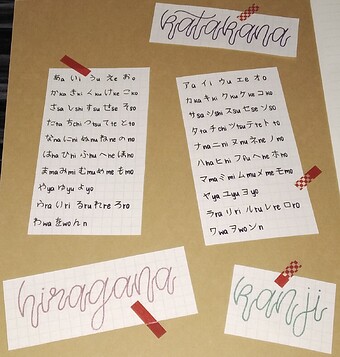 katakana
あa いi うu えe おo
かka きki くku けke こko
さsa しshi すsu せse そso
たta ちchi つtsu てte とto
なna にni ぬnu ねne のno
はha ひhi ふhu へhe ほho
まma みmi むmu めme もmo
やya ゆyu よyo
らra りri るru れre ろro
わwa をwo んn
アa イi ウu エe オo
カka キki クku ケke コko
サsa シshi スsu セse ソso
タta チchi ツtsu テte トto
ナna ニni ヌnu ネne ノno
ハha ヒhi フhu ヘhe ホho
マma ミmi ムmu メme モmo
ヤya ユyu ヨyo
ラra リri ルru レre ロro
ワwa ヲwo ンn
hiragana
kanji